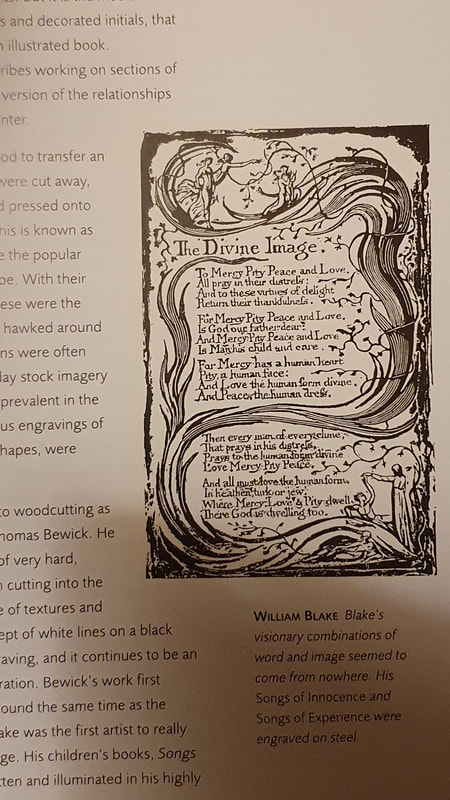 s and decorated initials, that
n illustrated book.
ribes working on sections of
version of the relationships
nter.
od to transfer an
were cut away,
d pressed onto
his is known as
e the popular
pe. With their
ese were the
hawked around
ns were often
lay stock imagery
prevalent in the
us engravings of
hapes, were
to woodcutting as
homas Bewick. He
of very hard,
n cutting into the
e of textures and
ept of white lines on a black
raving, and it continues to be an
ration. Bewick's work first
ound the same time as the
ake was the first artist to really
ge. His children's books, Songs
tten and illuminated in his highly
The Divine Image.
To Mercy Pity Peace and Love,
All pray in their distress:
And to these virtues of delight
Return their thankfulness.
For Mercy Pity Peace and Love,
Is God our father dear:
And Mercy Pity Peace and Love
Is Man his child and care.
For Mercy has a human heart
Pity, a human face:
And Love the human form divine,
And Peace, the human dress.
Then every man of every clime,
That prays in his distress,
Prays to the human form divine
Love Mercy Pity Peace.
And all must love the human form,
In heathen, turk or jew.
Where Mercy, Love & Pity dwell,
There God is dwelling too.
WILLIAM BLAKE Blake's
visionary combinations of
word and image seemed to
come from nowhere. His
Songs of Innocence and
Songs of Experience were
engraved on steel.